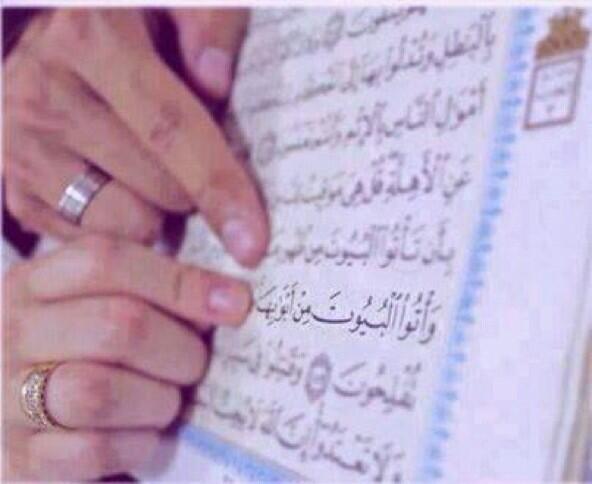 بِٱلْبَٰطِلِ وَتُدْلُوا۟ بِهَآ إِلَى
أَمْوَٰلِ ٱلنَّاسِ بِٱلْإِثْمِ وَأَنتُمْ
عَنِ ٱلْأَهِلَّةِ قُلْ هِىَ مَوَٰقِيتُ
بِأَن تَأْتُوا۟ ٱلْبُيُوتَ مِن
وَأْتُوا۟ ٱلْبُيُوتَ مِنْ أَبْوَٰبِهَا
تُفْلِحُونَ وَقَٰتِلُوا۟ فِى
وَلَا تَعْتَدُوٓا۟ إِنَّ ٱللَّهَ لَا يُحِبُّ